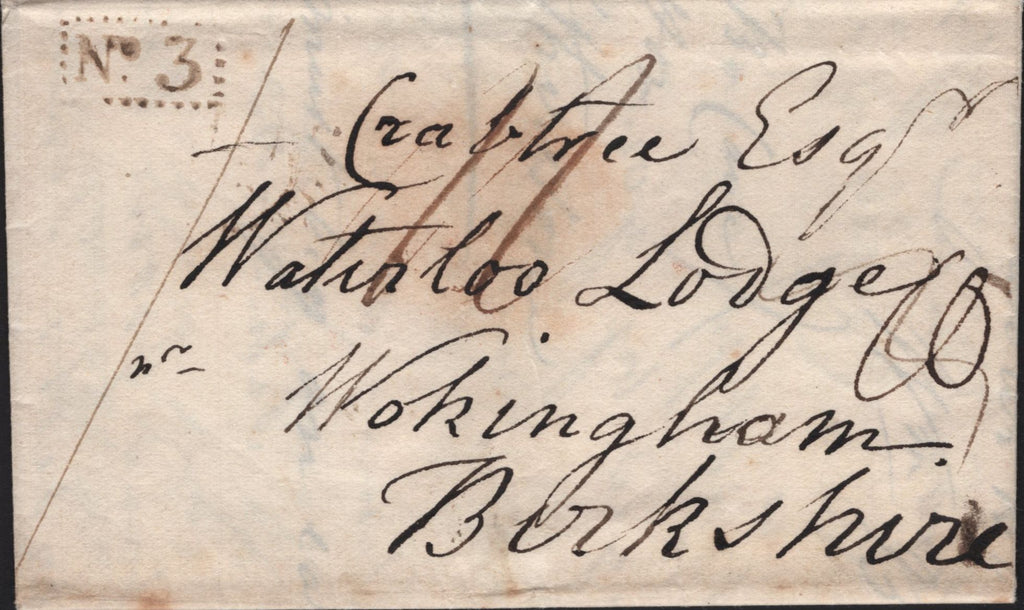 No. 3
— Crabtree Esqr
Waterloo Lodge
nr Wokingham
Berkshire